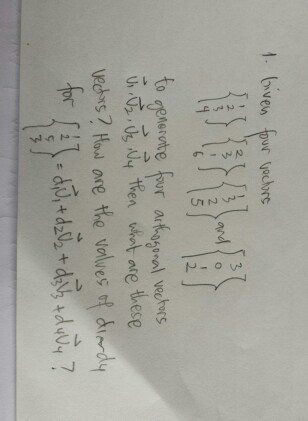 1. Given four vectors
{2 3 1 4} {2 3 1 6} {3 1 2 5} and {3 0 1 2}
to generate four orthogonal vectors
v⃗1, v⃗2, v⃗3, v⃗4 then what are these
vectors? How are the values of d1~d4
for {2 1 5 3} = d1v⃗1 + d2v⃗2 + d3v⃗3 + d4v⃗4 ?